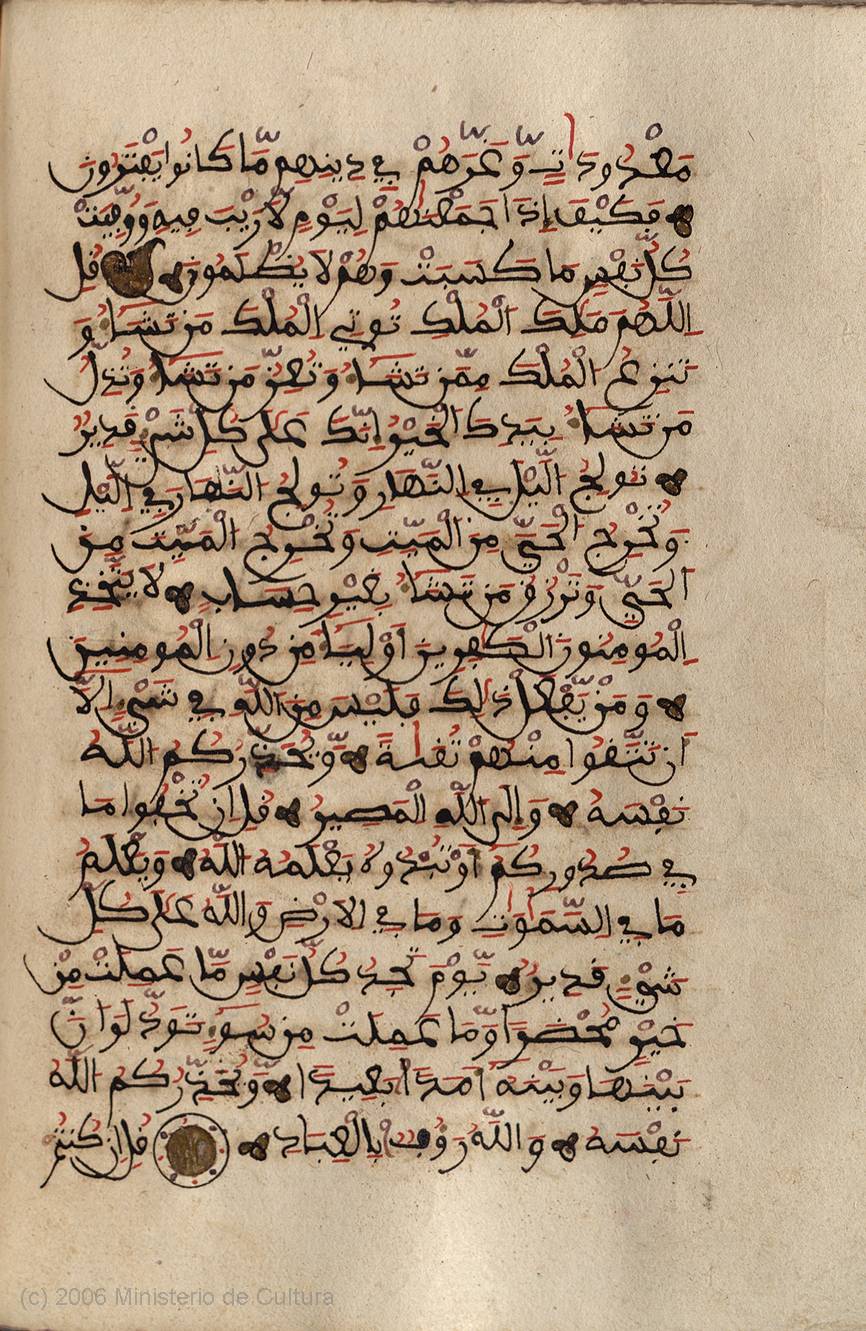 مَّعْدُودَٰتٍ وَغَرَّهُمْ فِي دِينِهِم مَّا كَانُوا يَفْتَرُونَ
فَكَيْفَ إِذَا جَمَعْنَٰهُمْ لِيَوْمٍ لَّا رَيْبَ فِيهِ وَوُفِّيَتْ
كُلُّ نَفْسٍ مَّا كَسَبَتْ وَهُمْ لَا يُظْلَمُونَ قُلِ
اللَّهُمَّ مَٰلِكَ الْمُلْكِ تُوتِي الْمُلْكَ مَن تَشَاءُ وَ
تَنزِعُ الْمُلْكَ مِمَّن تَشَاءُ وَتُعِزُّ مَن تَشَاءُ وَتُذِلُّ
مَن تَشَاءُ بِيَدِكَ الْخَيْرُ إِنَّكَ عَلَىٰ كُلِّ شَيْءٍ قَدِيرٌ
تُولِجُ الَّيْلَ فِي النَّهَارِ وَتُولِجُ النَّهَارَ فِي الَّيْلِ
وَتُخْرِجُ الْحَيَّ مِنَ الْمَيِّتِ وَتُخْرِجُ الْمَيِّتَ مِنَ
الْحَيِّ وَتَرْزُقُ مَن تَشَاءُ بِغَيْرِ حِسَابٍ لَّا يَتَّخِذِ
الْمُومِنُونَ الْكَٰفِرِينَ أَوْلِيَاءَ مِن دُونِ الْمُومِنِينَ
وَمَن يَفْعَلْ ذَٰلِكَ فَلَيْسَ مِنَ اللَّهِ فِي شَيْءٍ إِلَّا
أَن تَتَّقُوا مِنْهُمْ تُقَىٰةً وَيُحَذِّرُكُمُ اللَّهُ
نَفْسَهُ وَإِلَى اللَّهِ الْمَصِيرُ قُلْ إِن تُخْفُوا مَا
فِي صُدُورِكُمْ أَوْ تُبْدُوهُ يَعْلَمْهُ اللَّهُ وَيَعْلَمُ
مَا فِي السَّمَٰوَٰتِ وَمَا فِي الْأَرْضِ وَاللَّهُ عَلَىٰ كُلِّ
شَيْءٍ قَدِيرٌ يَوْمَ تَجِدُ كُلُّ نَفْسٍ مَّا عَمِلَتْ مِنْ
خَيْرٍ مُّحْضَرًا وَمَا عَمِلَتْ مِن سُوءٍ تَوَدُّ لَوْ أَنَّ
بَيْنَهَا وَبَيْنَهُ أَمَدًا بَعِيدًا وَيُحَذِّرُكُمُ اللَّهُ
نَفْسَهُ وَاللَّهُ رَءُوفٌ بِالْعِبَادِ قُلْ إِن كُنتُمْ
(c) 2006 Ministerio de Cultura